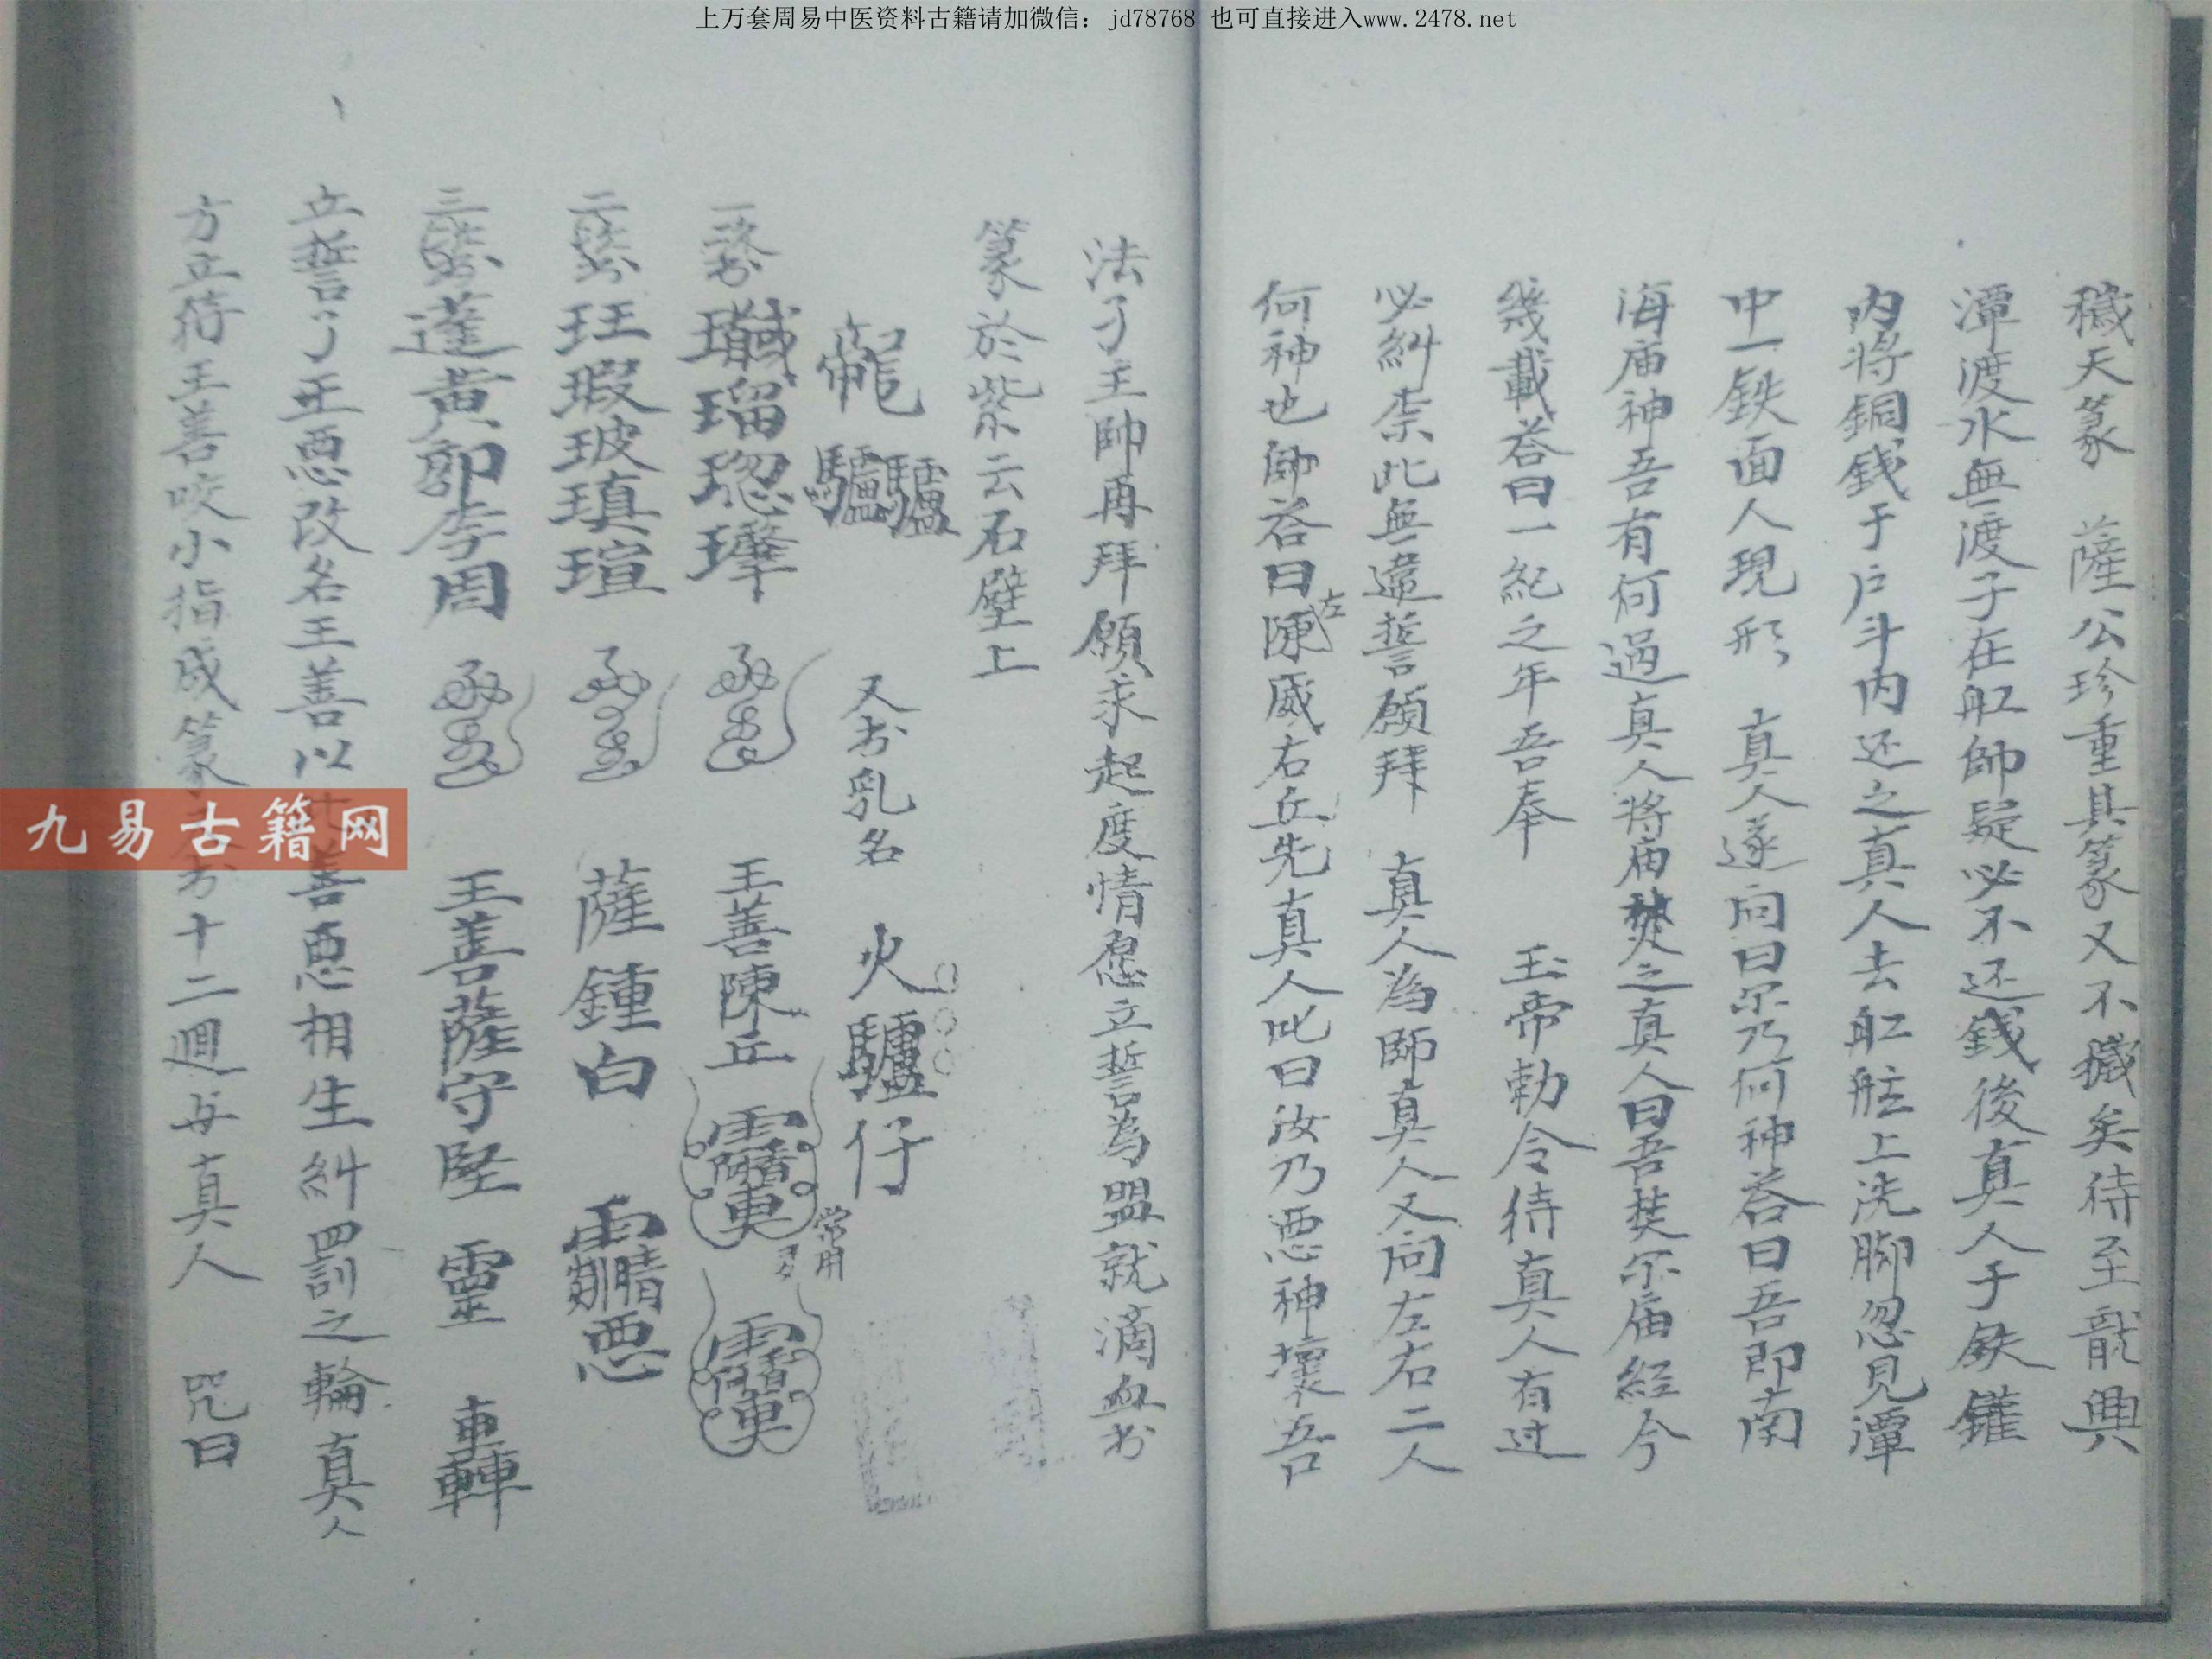 上万套周易中医资料古籍请加微信：jd78768 也可直接进入www.2478.net
穢天篆 薩公珍重其篆又不穢矣待至龍興
潭渡水無渡子在舡師疑必不还錢後真人于鉄鑵
内将銅銭于戶斗内还之真人去舡舵上洗脚忽見潭
中一鉄面人現形 真人遂问曰尔乃何神答曰吾即南
海庙神吾有何過真人将庙焚之真人曰吾焚尔庙經今
幾載答曰一紀之年吾奉 玉帝勅令待真人有过
必糾柰此無違誓願拜 真人為師真人又问左右二人
何神也師答曰左陳威右丘先真人叱曰汝乃悪神壞吾
法了王帥再拜願求起度情愿立誓為盟就滴血书
篆於紫云石壁上
又书乳名 火驢仔
常用
王善陳丘
薩鍾白 悪
蓬黄郭李周 王善薩守堅 靈 轟
立誓了王悪改名王善以此善悪相生糾罰之輪真人
方立待王善咬小指成篆 书十二週与真人 咒曰
九易古籍网